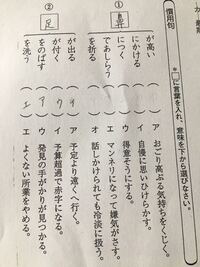 慣用句
＊□に言葉を入れ、意味を下から選びなさい。
①
鼻
が高い　ア　おごり高ぶる気持ちをくじく。
にかける　イ　自慢に思いひけらかす。
につく　ウ　得意そうにする。
であしらう　エ　マンネリになって嫌気がさす。
を折る　オ　話しかけられても冷淡に扱う。
②
足
が出る　イ　ア　予定より遠くへ行く。
が付く　ウ　イ　予算超過で赤字になる。
をのばす　ア　ウ　発見の手がかりが見つかる。
を洗う　エ　エ　よくない所業をやめる。